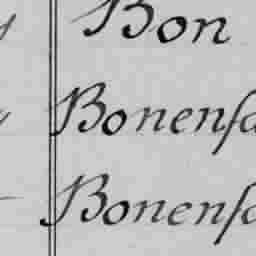 Bon
Bonenfa
Bonenfa